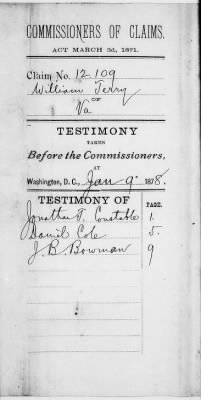 COMMISSIONERS OF CLAIMS.
ACT MARCH 3d, 1871.
Claim No. 12.109
William Terry
OF
Va
TESTIMONY
TAKEN
Before the Commissioners,
AT
Washington, D. C., Jan 9" 1878.
TESTIMONY OF PAGE.
Jonathan T. Constable 1.
Daniel Cole 5.
J. B. Bowman 9